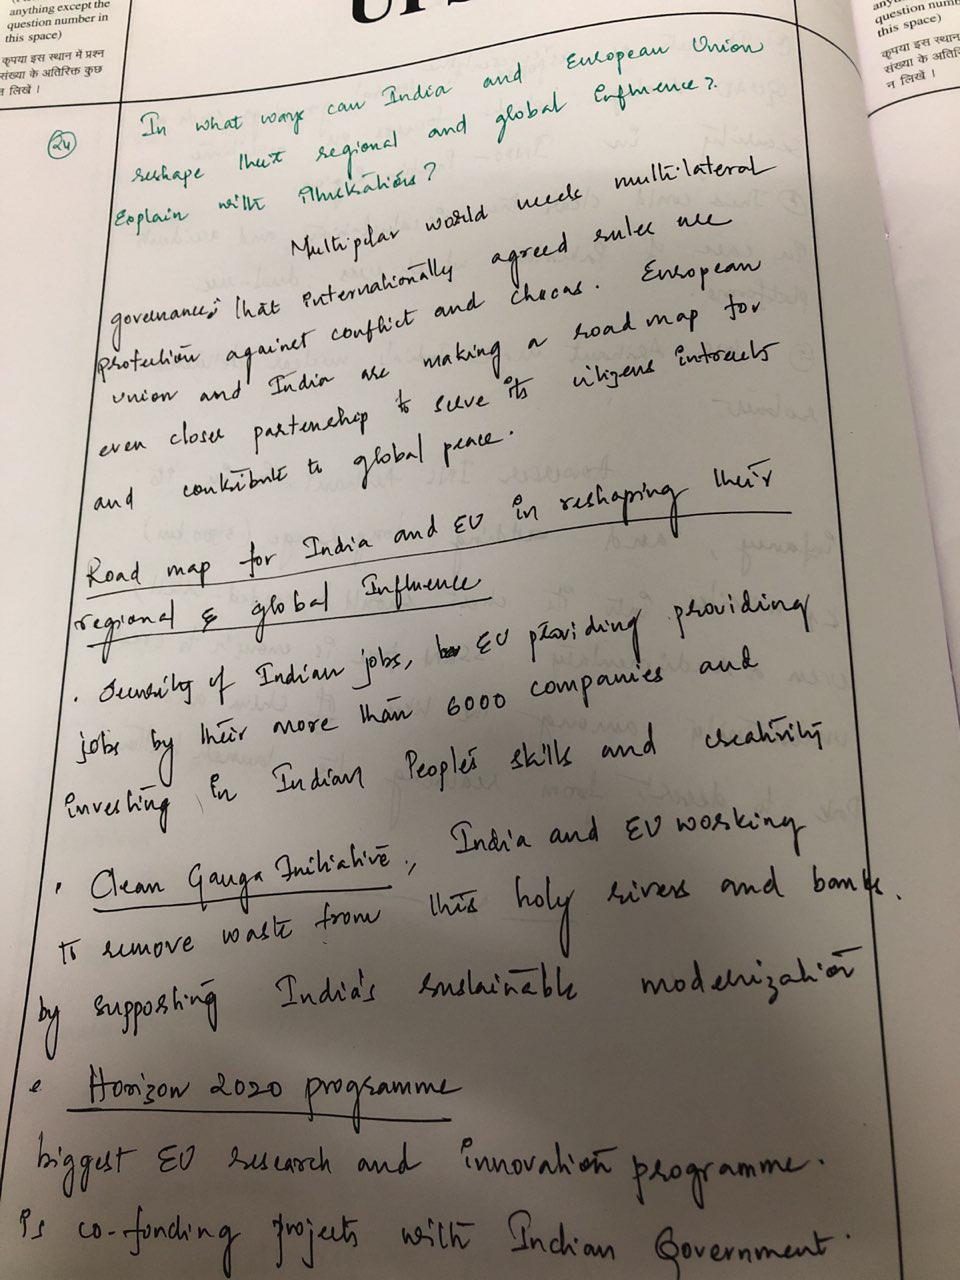 anything except the
question number in
this space)
कृपया इस स्थान में प्रश्न
संख्या के अतिरिक्त कुछ
न लिखें ।
question num
this space)
कृपया इस स्थान
संख्या के अतिरि
न लिखें ।
24
In what ways can India and European Union
reshape their regional and global influence?
Explain with illustrations?
Multipolar world needs multi-lateral
governance; that internationally agreed rules are
protection against conflict and chaos. European
Union and India are making a road map for
even closer partenership to serve its citizens intrests
and contribute to global peace.
Road map for India and EU in reshaping their
regional & global Influence
. Security of Indian jobs, EU providing providing
jobs by their more than 6000 companies and
investing in Indian People's skills and creativity
. Clean Ganga Initiative, India and EU working
to remove waste from this holy rivers and banks.
by supporting India's sustainable modernization
. Horizon 2020 programme
biggest EU research and innovation programme.
is co-funding projects with Indian Government.